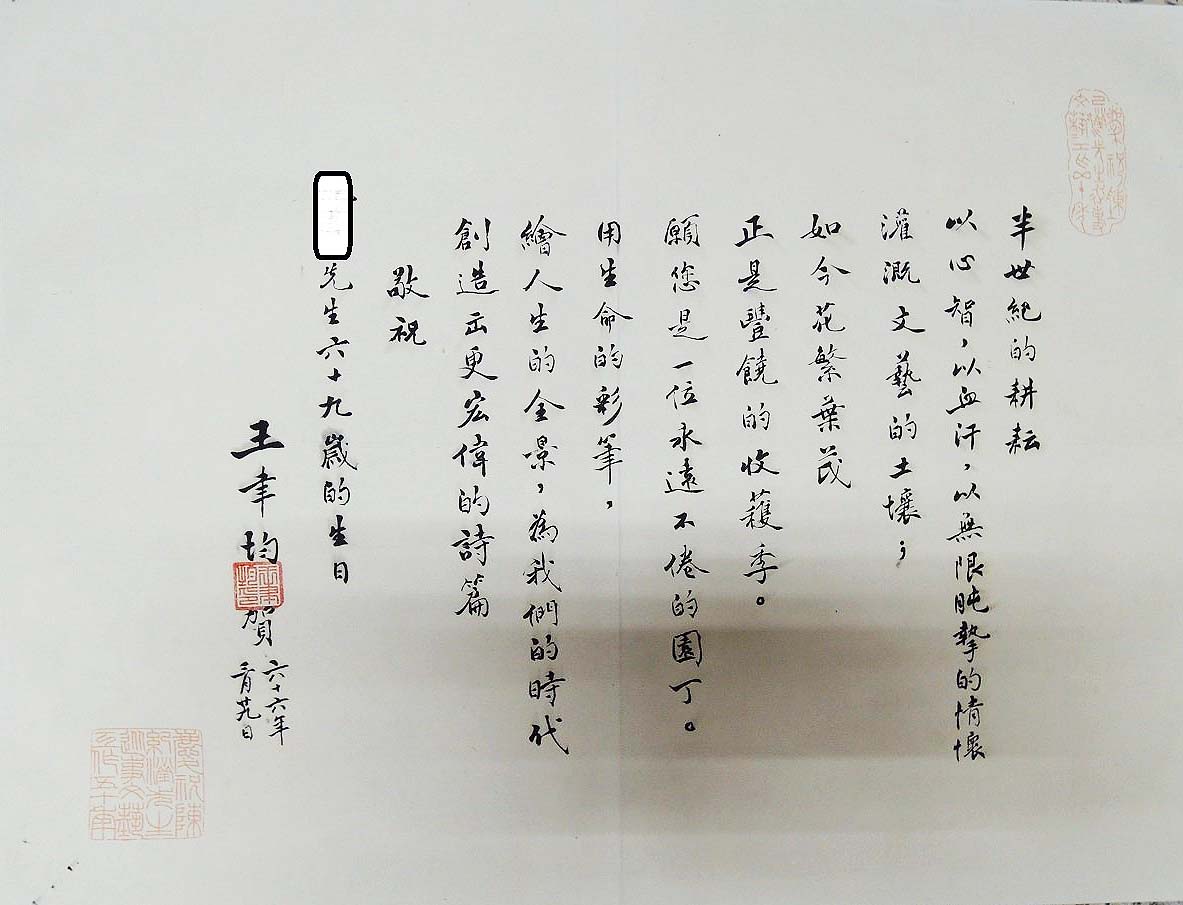 半世紀的耕耘
以心智，以血汗，以無限肫摯的情懷
灌溉文藝的土壤；
如今花繁葉茂
正是豐饒的收穫季。
願您是一位永遠不倦的園丁。
用生命的彩筆，
繪人生的全景，為我們的時代
創造出更宏偉的詩篇
敬祝
先生六十九歲的生日
王聿均賀
六十六年
三月廿九日